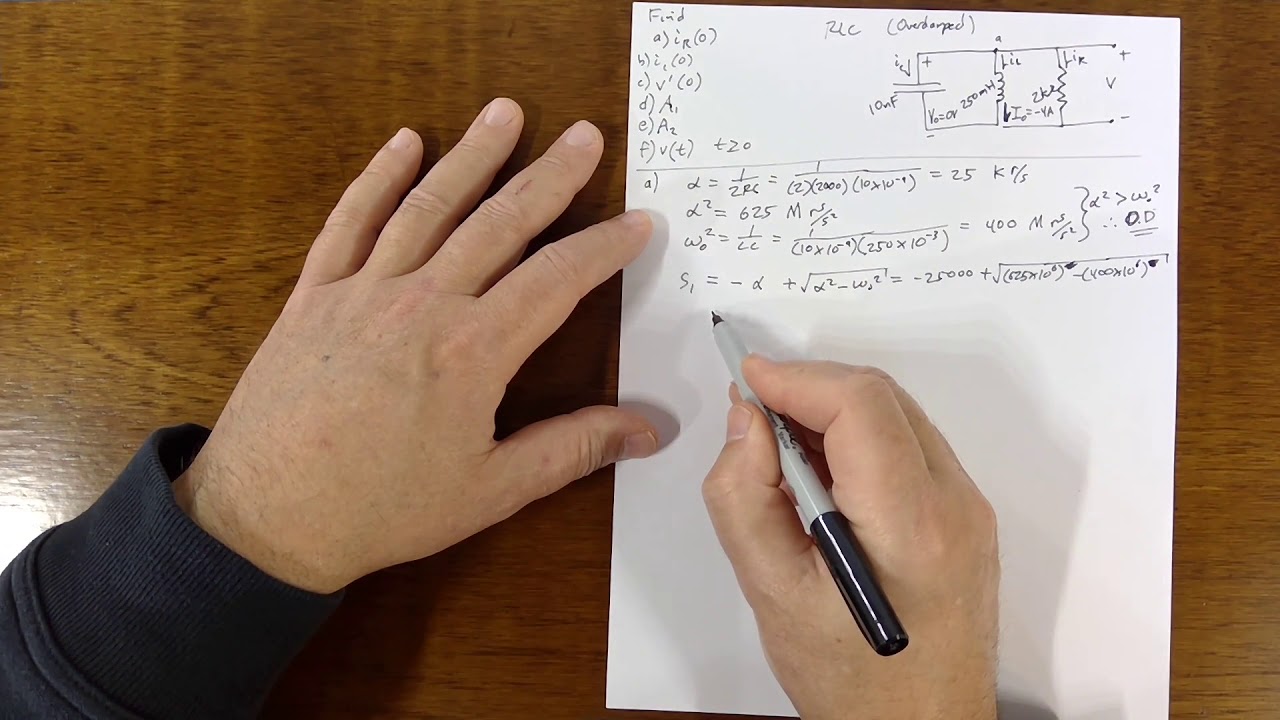 Find
a) iR(0)
b) ic(0)
c) v'(0)
d) A1
e) A2
f) v(t) t≥0
RLC (Overdamped)
a
ic + iL iR +
10nF V0=0V 250mH I0=-4A 2kΩ V
- -
a) α = 1/2RC = 1/(2)(2000)(10x10^-9) = 25 K r/s
α² = 625 M r/s/s²
ω0² = 1/LC = 1/(10x10^-9)(250x10^-3) = 400 M r/s/s²
} α² > ω0²
∴ O.D
S1 = -α + √α²-ω0² = -25000 + √(625x10^6) -(400x10^6)